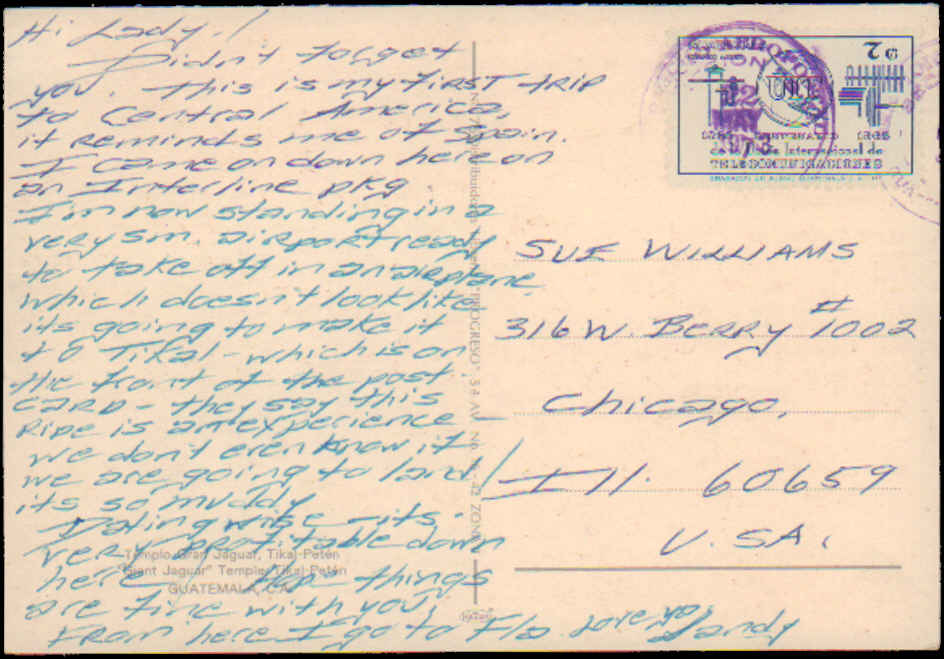 Hi Lady!
Didn't forget
you. This is my first trip
to Central America,
it reminds me of Spain.
I came on down here on
an Interline pkg.
I'm now standing in a
very sm. airport ready
to take off in an airplane
which doesn't look like
its going to make it
to Tikal - which is on
the front of the post
card - they say this
Ripe is an experience
we don't even know if
we are going to land!
its so muddy
Dating wise - its
very profitable down
here. Hope things
are fine with you,
From here I go to Fla. Love ya, Sandy
Templo Gran Jaguar, Tikal-Petén
"Giant Jaguar" Temple, Tikal-Petén
GUATEMALA, C.A.
"PROGRESO", 3a AV. No. ZONA
AEROPO
MAY
UNIT
2 G
Internacional de
TELECOMUNICACIONES
SUE WILLIAMS
316 W. BERRY #1002
Chicago,
Ill. 60659
U.SA.